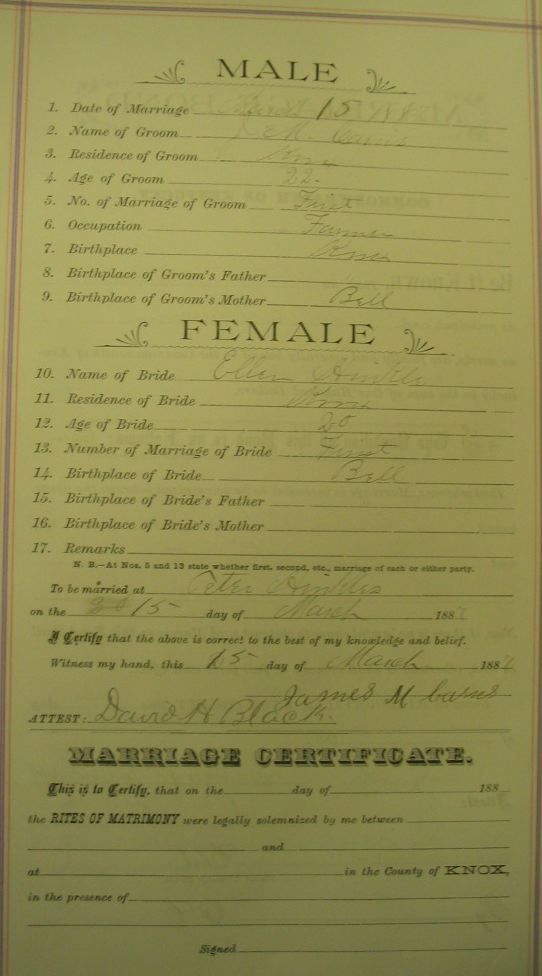 MALE
1. Date of Marriage March 15
2. Name of Groom J M.
3. Residence of Groom Knox
4. Age of Groom 22
5. No. of Marriage of Groom First
6. Occupation Farmer
7. Birthplace Knox
8. Birthplace of Groom's Father
9. Birthplace of Groom's Mother Bell
FEMALE
10. Name of Bride Ellen Hinkle
11. Residence of Bride Knox
12. Age of Bride 20
13. Number of Marriage of Bride First
14. Birthplace of Bride Bell
15. Birthplace of Bride's Father
16. Birthplace of Bride's Mother
17. Remarks
N. B.—At Nos. 5 and 13 state whether first, second, etc., marriage of each or either party.
To be married at Peter Hinkles
on the 15 day of March 188
I Certify that the above is correct to the best of my knowledge and belief.
Witness my hand, this 15 day of March 188
James M Carns
ATTEST: David H Black.
MARRIAGE CERTIFICATE.
This is to Certify, that on the day of 188
the RITES OF MATRIMONY were legally solemnized by me between
and
at in the County of KNOX,
in the presence of
Signed